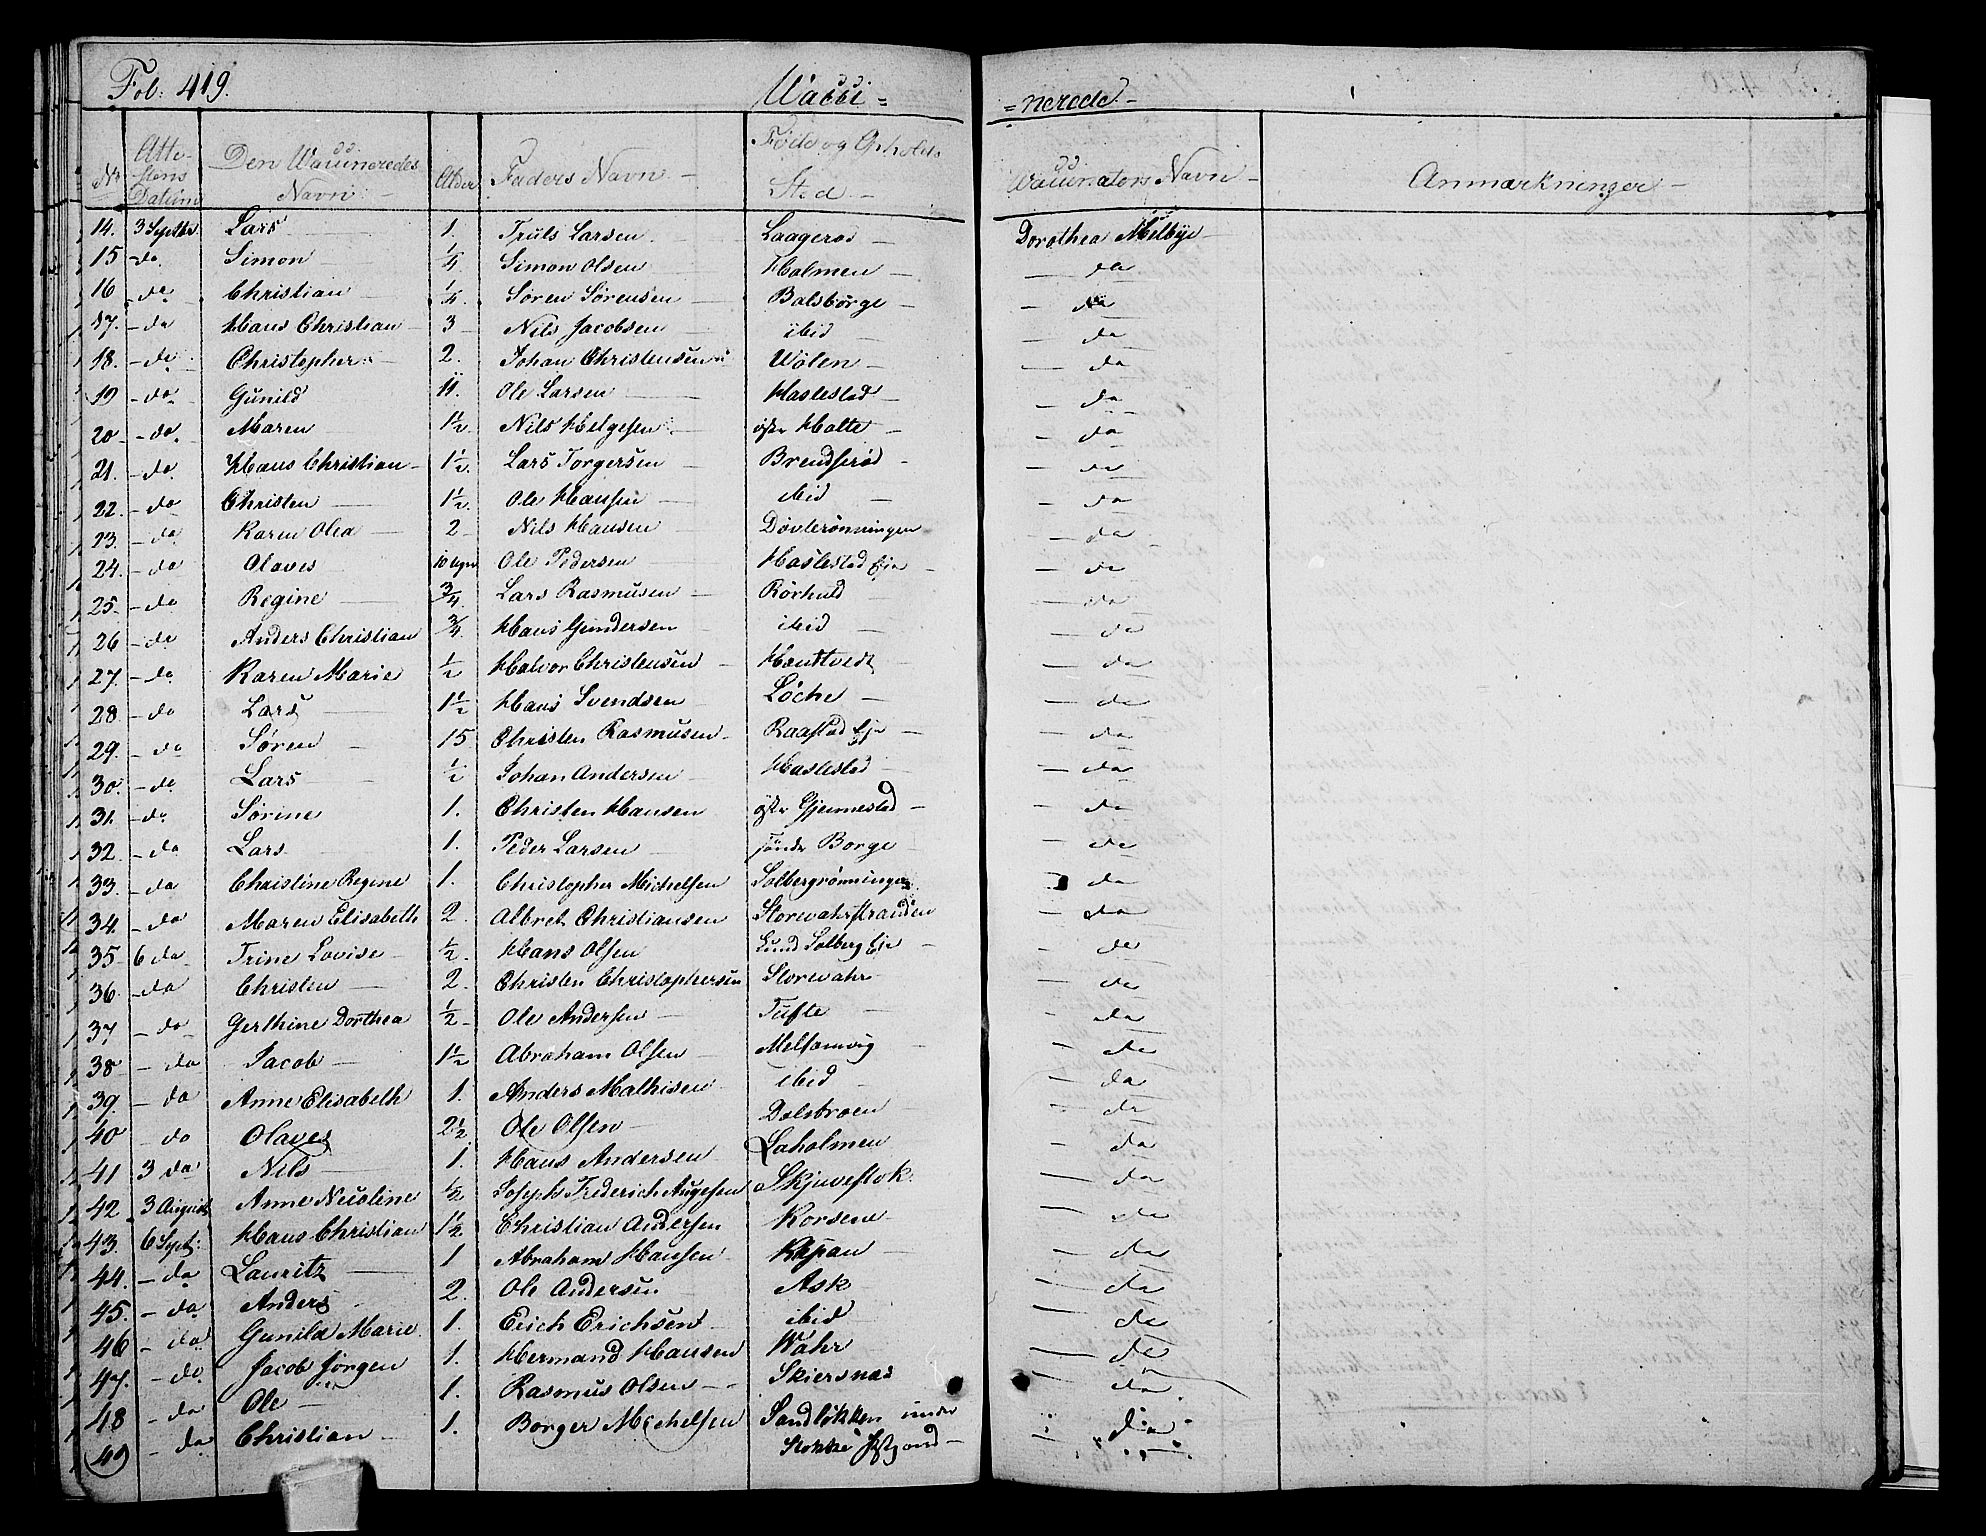 Fol: 419. Vacci= =nerede.
Nr Attestens Datum Den Vaccineredes Navn Alder Faders Navn Føde og Opholds Sted Vaccinators Navn Anmærkninger
14. 3 Septbr. Lars 1. Truls Larsen Laagerød Dorothea Melbye
15 do Simon 1/4 Simon Olsen Holmen do
16 do Christian 1/4 Søren Sørensen Balsborge do
17. do Hans Christian 3 Nils Jacobsen ibid do
18. do Christopher 2. Johan Christensen Wølen do
19 do Gunild 11. Ole Larsen Haslestad do
20 do Maren 1 1/2 Nils Helgesen østr Holte do
21. do Hans Christian 1 1/2 Lars Torgersen Brendserød do
22. do Christen 1 1/2 Ole Hansen ibid do
23. do Karen Olea 2 Nils Hansen Døvlerønningen do
24. do Olaves 10 Uger Ole Pedersen Haslestad Eje do
25. do Regine 3/4 Lars Rasmusen Rørkuld do
26 do Anders Christian 3/4 Hans Gundersen ibid do
27. do Karen Marie 1/2 Halvor Christensen Hæntvedt do
28. do Lars 1 1/2 Hans Svendsen Løche do
29. do Søren 15 Christen Rasmusen Raastad Eje do
30. do Lars 1/2 Johan Andersen Haslestad do
31. do Sørine 1. Christen Hansen østr Gjennestad do
32. do Lars 1. Peder Larsen søndr Borge do
33. do Christine Regine 1. Christopher Michelsen Solbergrønningen do
34. do Maren Elisabeth 2. Albret Christiansen Storevahrstranden do
35 6 do Trine Lovise 1/2 Hans Olsen Lund Solberg Eje do
36. do Christen 2. Christen Christophersen Storevahr do
37 do Gerthine Dorthea 1/2 Ole Andersen Tufte do
38 do Jacob 1 1/2 Abraham Olsen Melsomvig do
39. do Anne Elisabeth 1. Anders Mathisen ibid do
40 do Olaves 2 1/2 Ole Olsen Dalsbroen do
41 3 do Nils 1. Hans Andersen Laholmen do
42 3 August Anne Nicoline 1/2 Joseph Frederich Augesen Skjuvestok do
43. 6 Sept: Hans Christian 1 1/2 Christian Andersen Korsene do
44. do Lauritz 1 Abraham Hansen Kapan do
45. do Anders 2. Ole Andersen Ask do
46 do Gunild Marie 1. Erich Erichsen ibid do
47. do Jacob Jørgen 1. Hermand Hansen Wahr do
48 do Ole 1. Rasmus Olsen Skiersnæs do
49 do Christian 1. Borger Michelsen Sandløkken under do
Stokke